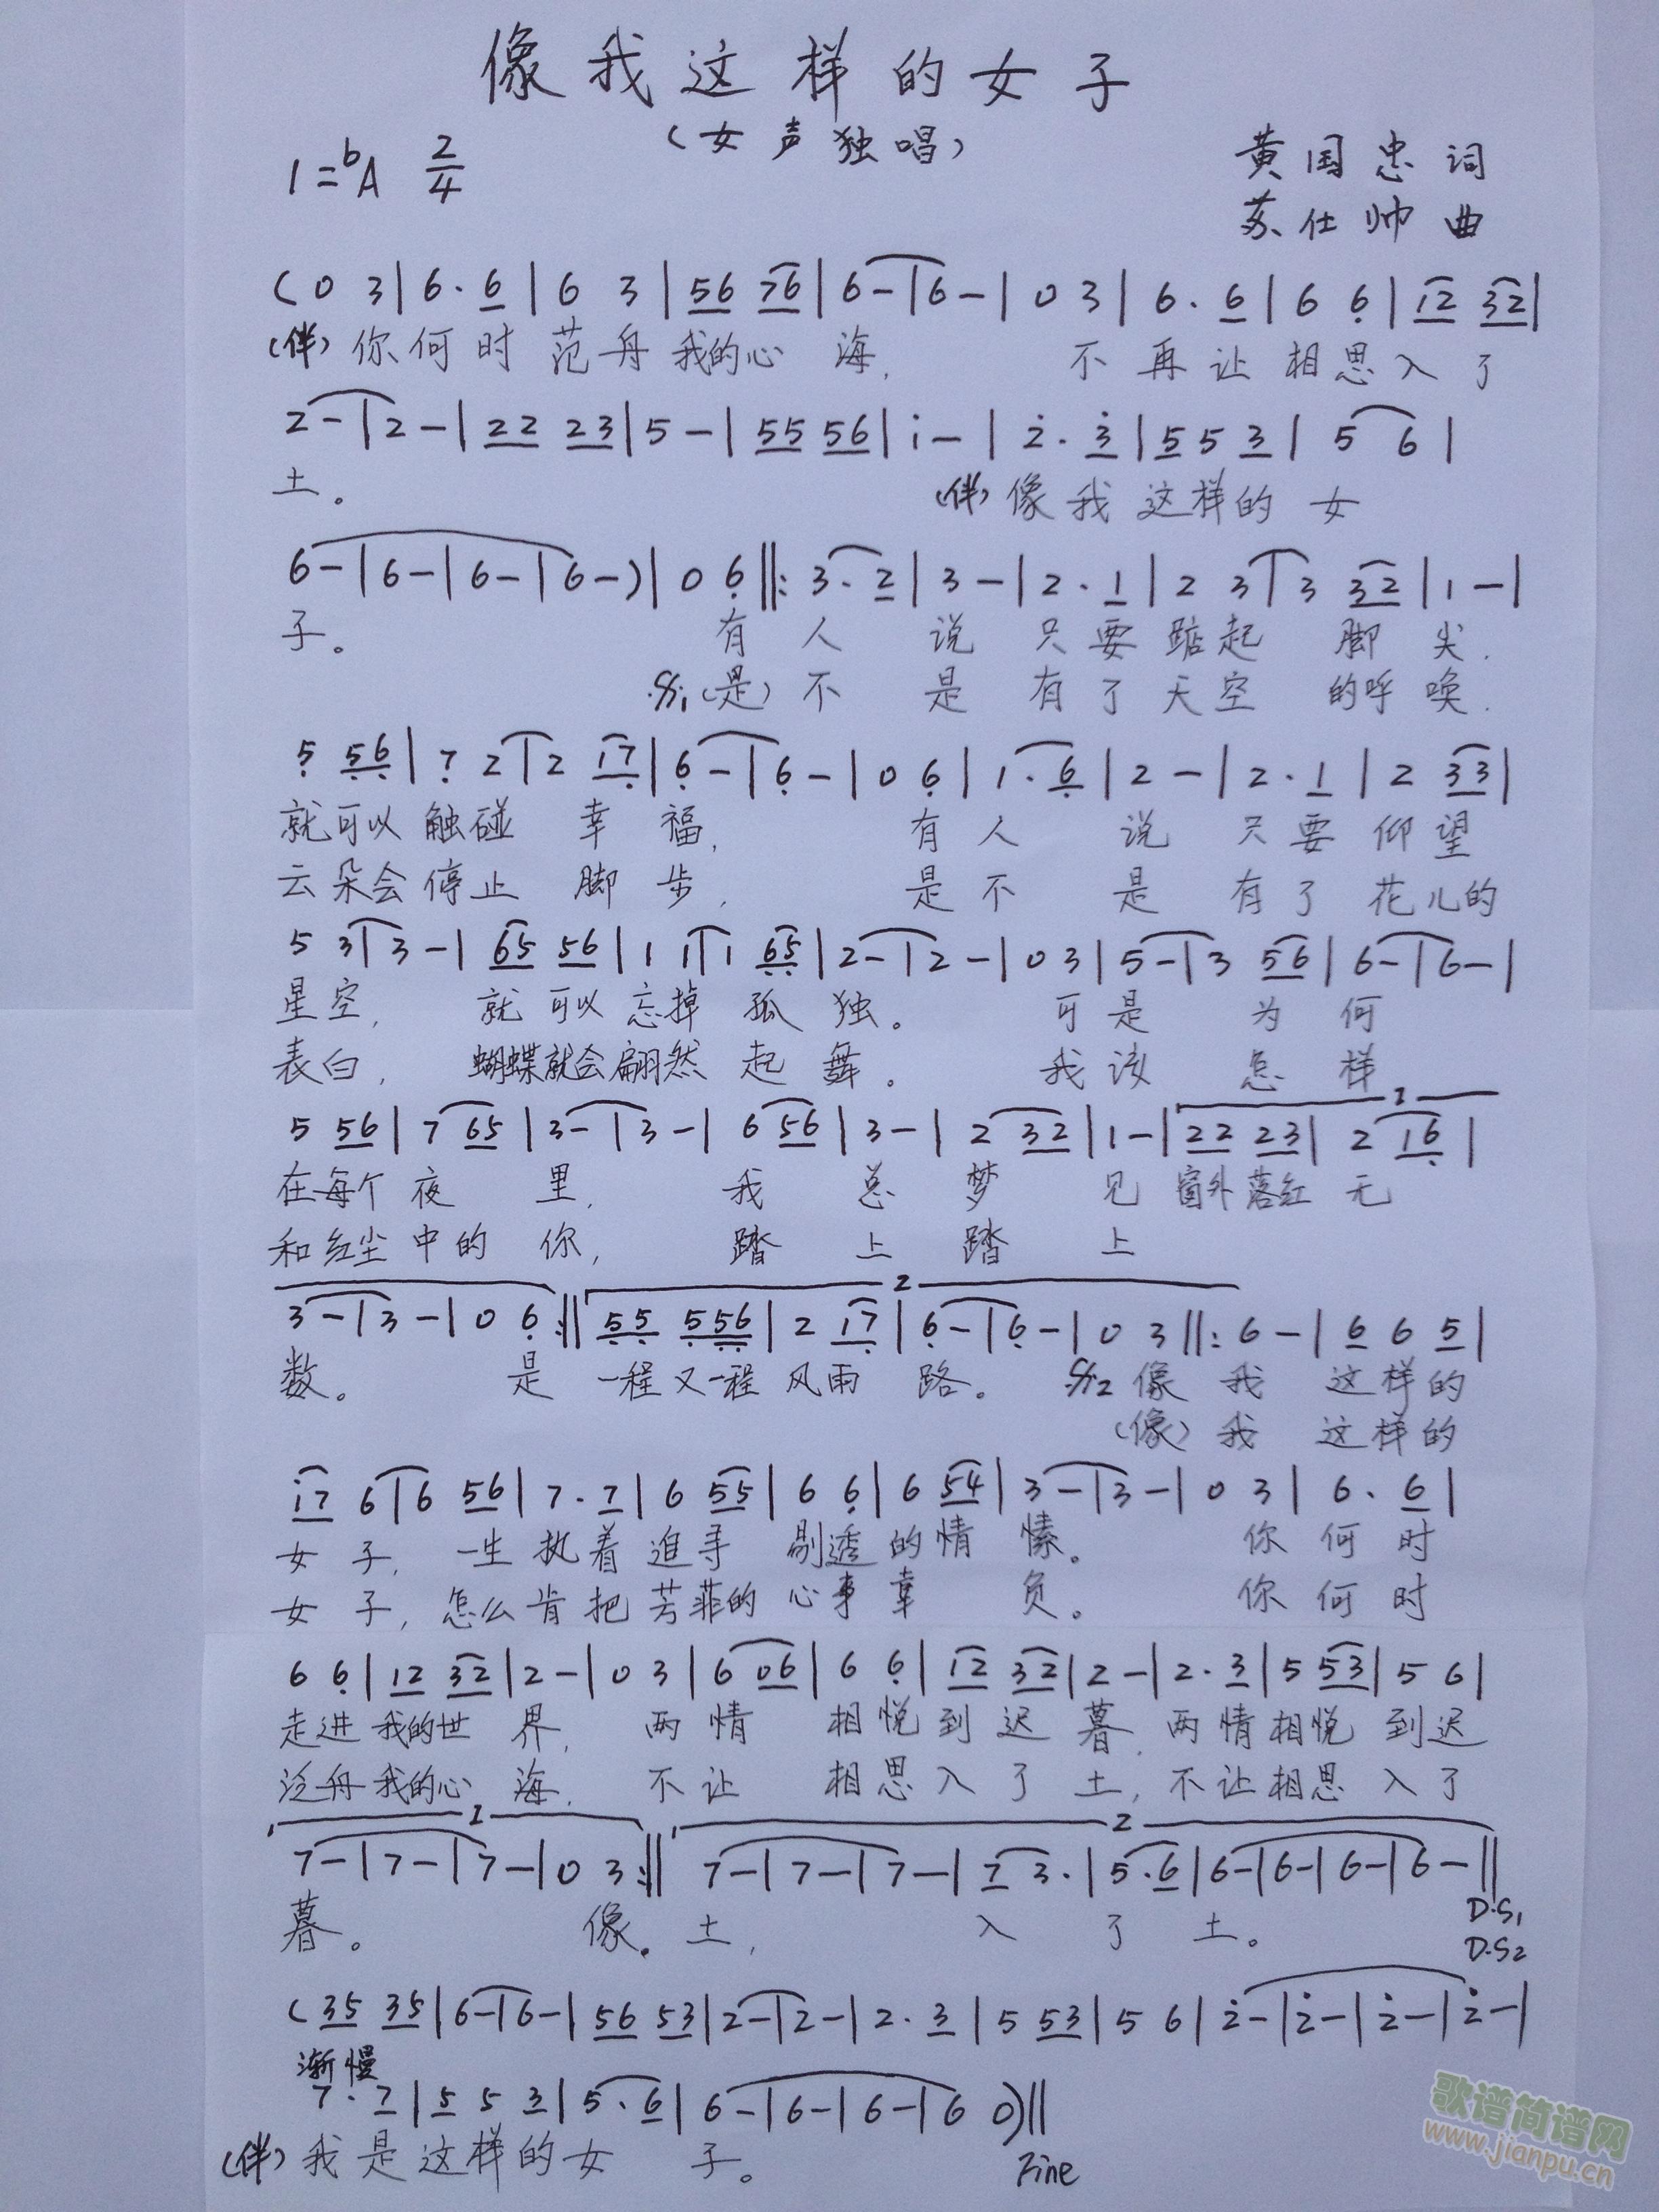 像我这样的女子
(女声独唱)
1=bA 2/4
黄国忠 词
苏仕帅 曲
(0 3|6. 6|6 3|56 76|6-|6-|0 3|6. 6|6 6|12 32|
(伴)你何时范舟我的心海, 不再让相思入了
2-|2-|22 23|5-|55 56|i-|2. 3|5 5 3|5 6|
土。 (伴)像我这样的女
6-|6-|6-|6-)|0 6||:3. 2|3-|2. 1|2 3|3 32|1-|
子。 有人说只要踮起脚尖,
S1(是)不是有了天空的呼唤,
5 56|7 2|2 17|6-|6-|0 6|1. 6|2-|2. 1|2 33|
就可以触碰幸福, 有人说只要仰望
云朵会停止脚步, 是不是有了花儿的
5 3|3-|65 56|1 1|1 65|2-|2-|0 3|5-|3 56|6-|6-|
星空, 就可以忘掉孤独。 可是为何
表白, 蝴蝶就会翩然起舞。 我该怎样
1
5 56|7 65|3-|3-|6 56|3-|2 32|1-|22 23|2 16|
在每个夜里, 我总梦见窗外落红无
和红尘中的你, 踏上踏上
2
3-|3-|0 6:||55 556|2 17|6-|6-|0 3||:6-|6 6 5|
数。 是一程又一程风雨路。 S2 像我这样的
(像)我这样的
i7 6|6 56|7. 7|6 55|6 6|6 54|3-|3-|0 3|6. 6|
女子, 一生执着追寻剔透的情愫。 你何时
女子, 怎么肯把芳菲的心事辜负。 你何时
6 6|12 32|2-|0 3|6 06|6 6|12 32|2-|2. 3|5 53|5 6|
走进我的世界, 两情相悦到迟暮, 两情相悦到迟
泛舟我的心海, 不让相思入了土, 不让相思入了
1 2
7-|7-|7-|0 3:||7-|7-|7-|7 3.|5. 6|6-|6-|6-|6-||
暮。 像。土, 入了土。
D.S1
D.S2
(35 35|6-|6-|56 53|2-|2-|2. 3|5 53|5 6|2-|2-|2-|2-|
渐慢
7. 7|5 5 3|5. 6|6-|6-|6-|6 0)||
(伴)我是这样的女子。 Fine
歌谱简谱网
www.jianpu.cn